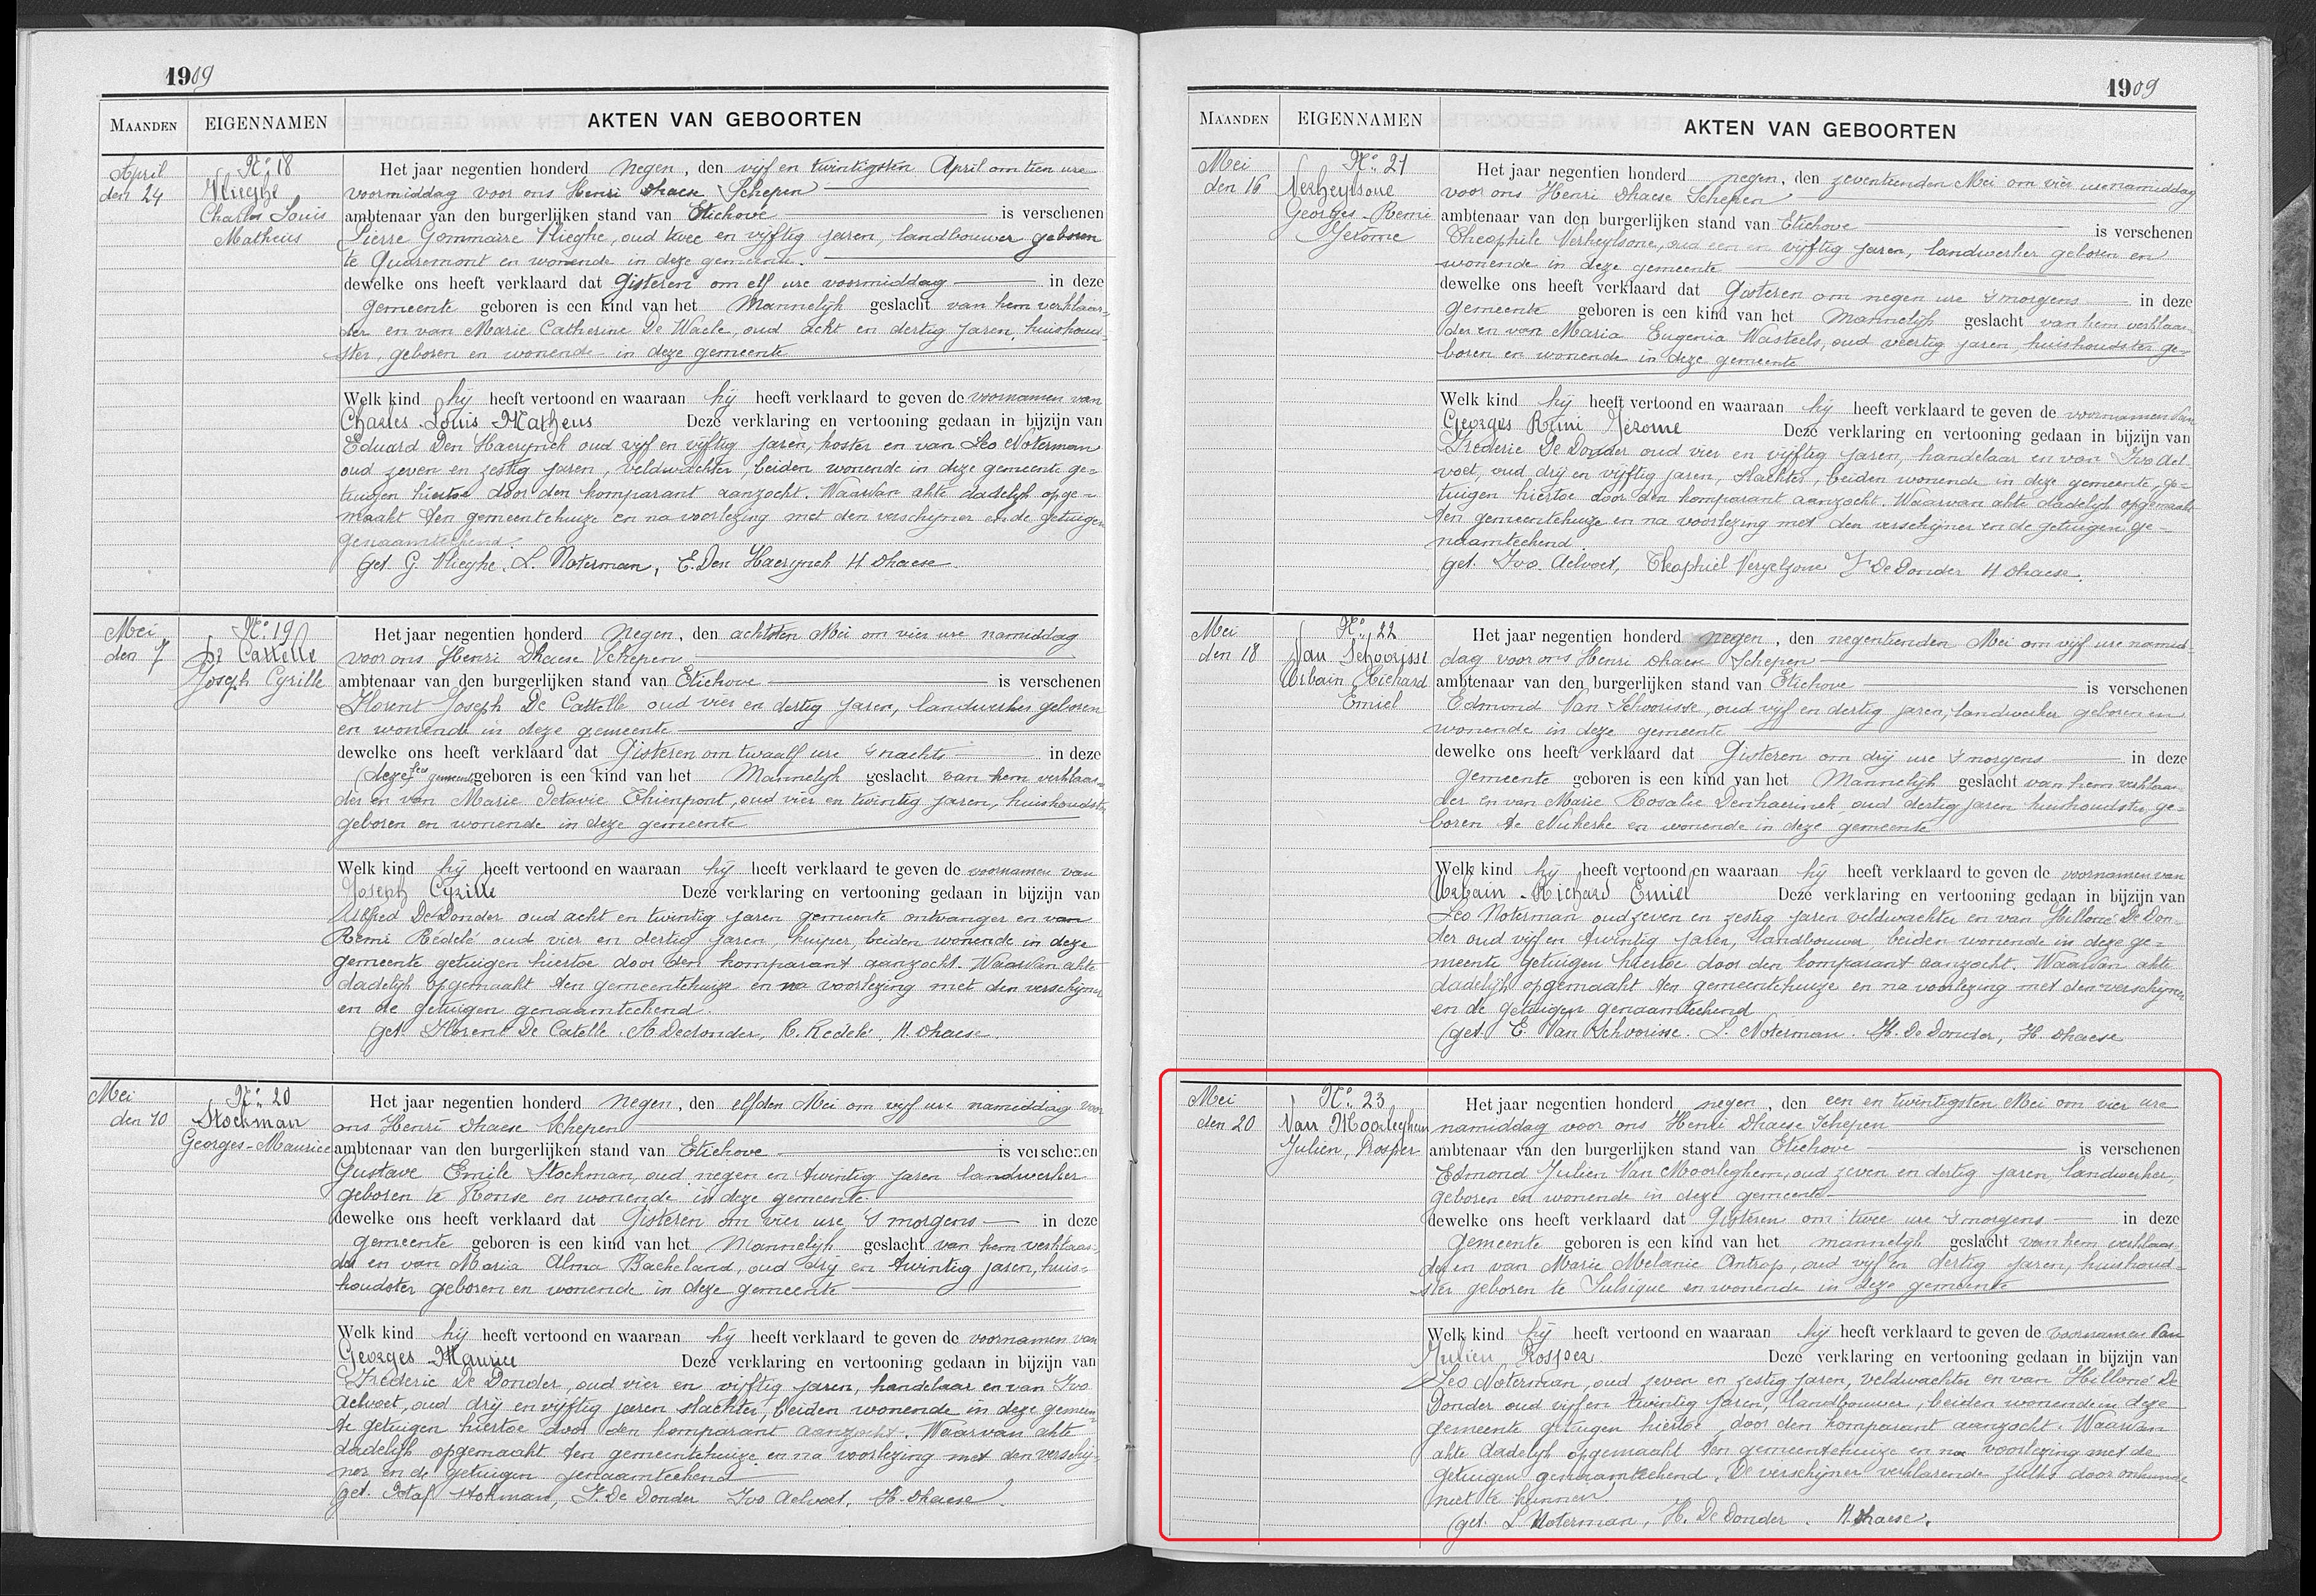 1909
MAANDEN EIGENNAMEN AKTEN VAN GEBOORTEN
April
den 24
No. 18
Vlieghe
Charles Louis
Matheus
Het jaar negentien honderd negen, den vijf en twintigsten April om tien ure
voormiddag voor ons Henri Dhaese Schepen
ambtenaar van den burgerlijken stand van Etichove is verschenen
Pierre Gommaire Vlieghe, oud twee en vijftig jaren, landbouwer geboren
te Quaremont en wonende in deze gemeente.
dewelke ons heeft verklaard dat Gisteren om elf ure voormiddag in deze
gemeente geboren is een kind van het Mannelijk geslacht van hem verklaar-
der en van Marie Catherine De Waele, oud acht en dertig jaren, huishoud-
ster, geboren en wonende in deze gemeente
Welk kind hij heeft vertoond en waaraan hij heeft verklaard te geven de voornamen van
Charles Louis Matheus Deze verklaring en vertooning gedaan in bijzijn van
Eduard Den Haerynck oud vijf en vijftig jaren, koster en van Leo Noterman
oud zeven en zestig jaren, veldwachter, beiden wonende in deze gemeente ge-
tuigen hiertoe door den komparant aanzocht. Waarvan akte dadelijk opge-
maakt ten gemeentehuize en na voorlezing met den verschijner en de getuigen
genaamteekend.
get. G. Vlieghe. L. Noterman, E. Den Haerynck H Dhaese.
Mei
den 7
No. 19
De Cattelle
Joseph Cyrille
Het jaar negentien honderd negen, den achtsten Mei om vier ure namiddag
voor ons Henri Dhaese Schepen
ambtenaar van den burgerlijken stand van Etichove is verschenen
Florent Joseph De Cattelle oud vier en dertig jaren, landwerker geboren
en wonende in deze gemeente
dewelke ons heeft verklaard dat Gisteren om twaalf ure s nachts in deze
deze gemeente geboren is een kind van het Mannelijk geslacht van hem verklaar-
der en van Marie Octavie Thienpont, oud vier en twintig jaren, huishoudster
geboren en wonende in deze gemeente
Welk kind hij heeft vertoond en waaraan hij heeft verklaard te geven de voornamen van
Joseph Cyrille Deze verklaring en vertooning gedaan in bijzijn van
Alfred DeDonder oud acht en twintig jaren gemeente ontvanger en van
Remi Rédelé oud vier en dertig jaren, kuiper, beiden wonende in deze
gemeente getuigen hiertoe door den komparant aanzocht. Waarvan akte
dadelijk opgemaakt ten gemeentehuize en na voorlezing met den verschijner
en de getuigen genaamteekend.
get. Florent De Catelle. A Dedonder, R. Redelé, H. Dhaese.
Mei
den 10
No. 20
Stockman
Georges-Maurice
Het jaar negentien honderd negen, den elfden Mei om vijf ure namiddag voor
ons Henri Dhaese Schepen
ambtenaar van den burgerlijken stand van Etichove is verschenen
Gustave Emile Stockman, oud negen en twintig jaren landwerker
geboren te Ronse en wonende in deze gemeente.
dewelke ons heeft verklaard dat Gisteren om vier ure s morgens in deze
gemeente geboren is een kind van het Mannelijk geslacht van hem verklaar-
der en van Maria Alma Bacheland, oud drij en twintig jaren, huis-
houdster geboren en wonende in deze gemeente
Welk kind hij heeft vertoond en waaraan hij heeft verklaard te geven de voornamen van
Georges Maurice Deze verklaring en vertooning gedaan in bijzijn van
Frederic De Donder, oud vier en vijftig jaren, handelaar en van Ivo
Aelvoet, oud drij en vijftig jaren slachter, beiden wonende in deze gemeen-
te getuigen hiertoe door den komparant aanzocht. Waarvan akte
dadelijk opgemaakt ten gemeentehuize en na voorlezing met den verschij-
ner en de getuigen genaamteekend
get. Stokman, F. De Donder Ivo Aelvoet. H. Dhaese.
1909
MAANDEN EIGENNAMEN AKTEN VAN GEBOORTEN
Mei
den 16
No. 21
Verheylsone
Georges-Remi
Jerome
Het jaar negentien honderd negen, den zeventienden Mei om vier ure namiddag
voor ons Henri Dhaese Schepen
ambtenaar van den burgerlijken stand van Etichove is verschenen
Theophile Verheylsone, oud een en vijftig jaren, landwerker geboren en
wonende in deze gemeente
dewelke ons heeft verklaard dat Gisteren om negen ure s morgens in deze
gemeente geboren is een kind van het Mannelijk geslacht van hem verklaar-
der en van Maria Eugenia Wasteels, oud veertig jaren, huishoudster ge-
boren en wonende in deze gemeente
Welk kind hij heeft vertoond en waaraan hij heeft verklaard te geven de voornamen van
Georges Remi Jerome Deze verklaring en vertooning gedaan in bijzijn van
Frederic De Donder oud vier en vijftig jaren, handelaar en van Ivo Ael-
voet, oud drij en vijftig jaren, slachter, beiden wonende in deze gemeente, ge-
tuigen hiertoe door den komparant aanzocht. Waarvan akte dadelijk opgemaakt
ten gemeentehuize en na voorlezing met den verschijner en de getuigen ge-
naamteekend.
get. Ivo. Aelvoet, Theophiel Vergelzone Fr De Donder H Dhaese.
Mei
den 18
No. 22
Van Schoorisse
Urbain Richard
Emiel
Het jaar negentien honderd negen, den negentienden Mei om vijf ure namid-
dag voor ons Henri Dhaese Schepen
ambtenaar van den burgerlijken stand van Etichove is verschenen
Edmond Van Schoorisse, oud vijf en dertig jaren, landwerker geboren en
wonende in deze gemeente
dewelke ons heeft verklaard dat Gisteren om drij ure s morgens in deze
gemeente geboren is een kind van het Mannelijk geslacht van hem verklaar-
der en van Marie Rosalie Denhaerinck oud dertig jaren huishoudster, ge-
boren te Nukerke en wonende in deze gemeente
Welk kind hij heeft vertoond en waaraan hij heeft verklaard te geven de voornamen van
Urbain-Richard Emiel Deze verklaring en vertooning gedaan in bijzijn van
Leo Noterman oud zeven en zestig jaren veldwachter en van Hilloné De Don-
der oud vijf en twintig jaren, landbouwer, beiden wonende in deze ge-
meente getuigen hiertoe door den komparant aanzocht. Waarvan akte
dadelijk opgemaakt ten gemeentehuize en na voorlezing met den verschijner
en de getuigen genaamteekend
get. E. Van Schoorisse. L. Noterman. H. De Donder, H. Dhaese
Mei
den 20
No. 23
Van Moorleghem
Julien, Prosper
Het jaar negentien honderd negen, den een en twintigsten Mei om vier ure
namiddag voor ons Henri Dhaese Schepen
ambtenaar van den burgerlijken stand van Etichove is verschenen
Edmond Julien Van Moorleghem, oud zeven en dertig jaren, landwerker,
geboren en wonende in deze gemeente
dewelke ons heeft verklaard dat Gisteren om twee ure s morgens in deze
gemeente geboren is een kind van het mannelijk geslacht van hem verklaar-
der en van Marie Melanie Antrop, oud vijf en dertig jaren, huishoud-
ster geboren te Sulsique en wonende in deze gemeente
Welk kind hij heeft vertoond en waaraan hij heeft verklaard te geven de voornamen van
Julien Prosper. Deze verklaring en vertooning gedaan in bijzijn van
Leo Noterman, oud zeven en zestig jaren, veldwachter en van Hilloné De
Donder oud vijf en twintig jaren, landbouwer, beiden wonende in deze
gemeente getuigen hiertoe door den komparant aanzocht. Waarvan
akte dadelijk opgemaakt ten gemeentehuize en na voorlezing met de
getuigen genaamteekend. De verschijner verklarende zulks door onkunde
niet te kunnen.
get. L Noterman, H. De Donder. H. Dhaese.